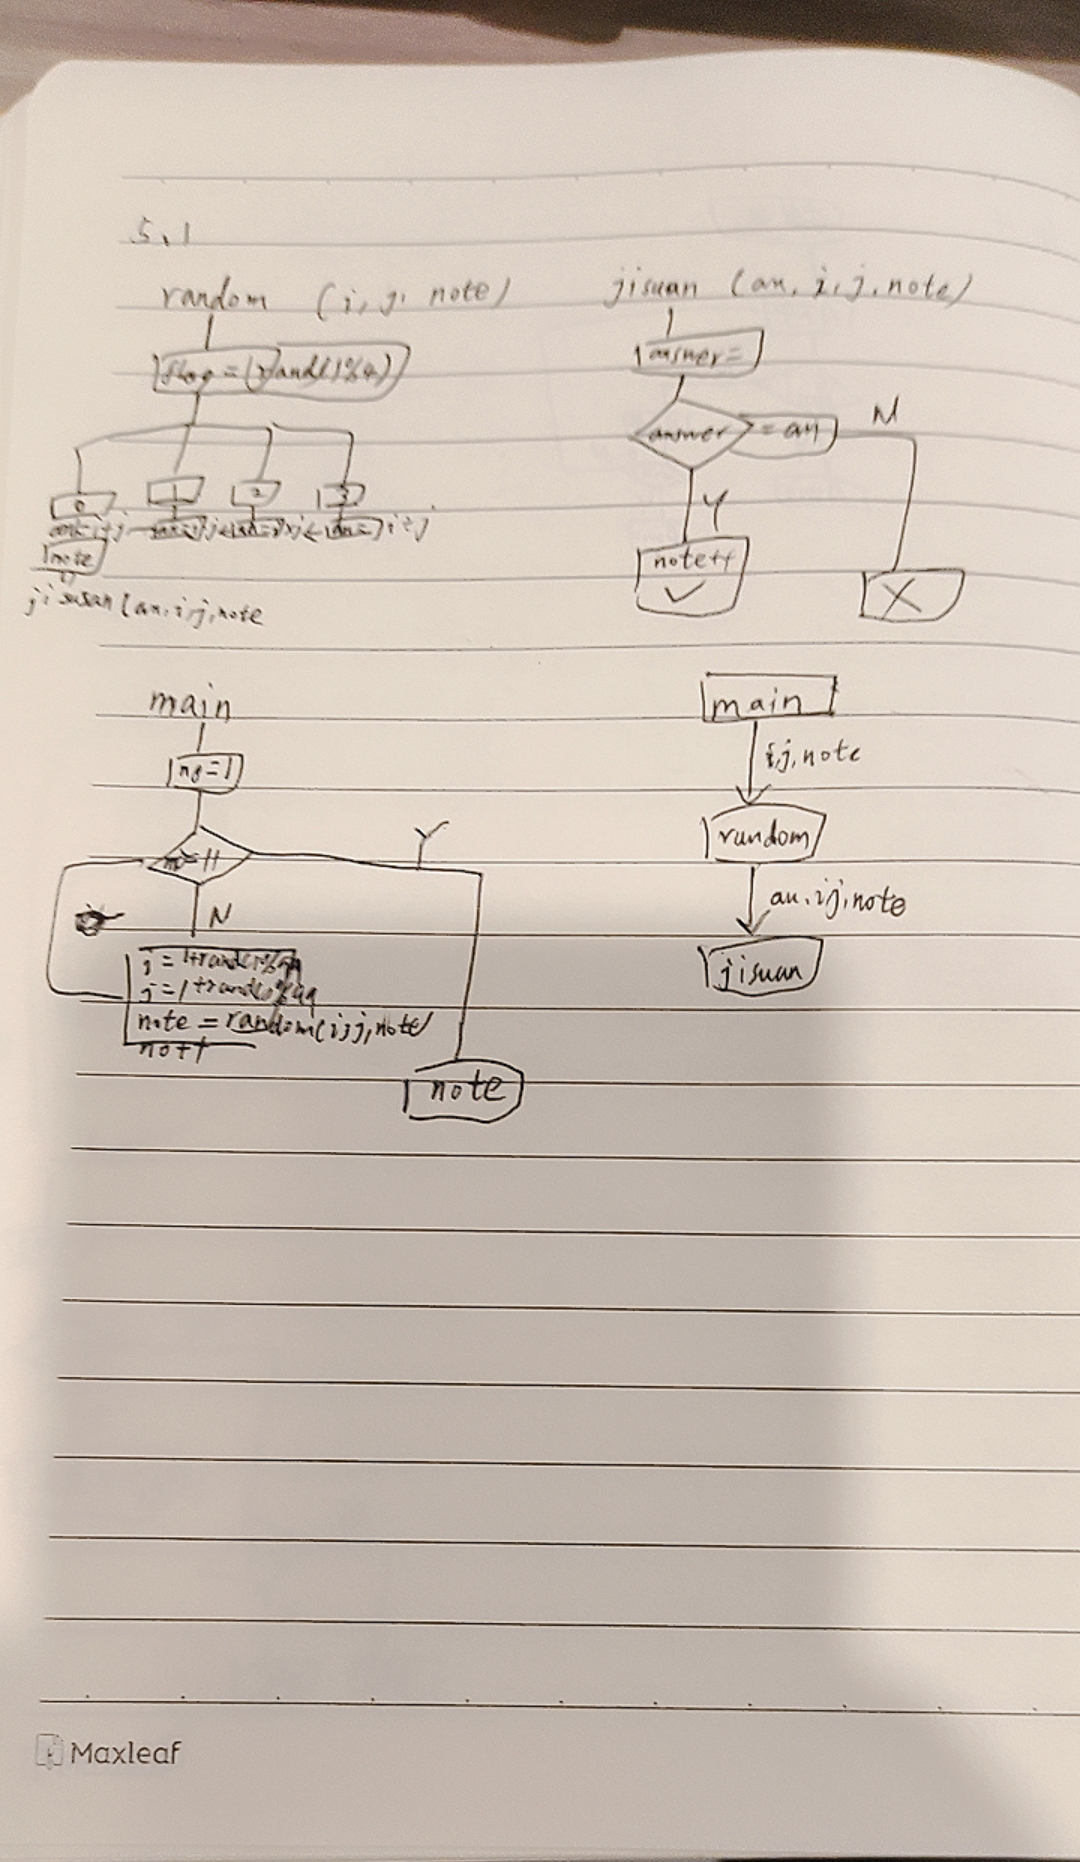 5.1
random (i, j, note)
flag = (rand()%4)
0 1 2 3
an=i+j
i÷j
note
jisusan (an, i, j, note
jisuan (an, i, j, note)
answer=
answer = an
N
Y
note++
✓
X
main
no=1
no=11
Y
N
j = 1+rand()%99
j = 1+rand()%99
note = random(i, j, note)
no++
note
main
i, j, note
random
an, i, j, note
jisuan
Maxleaf